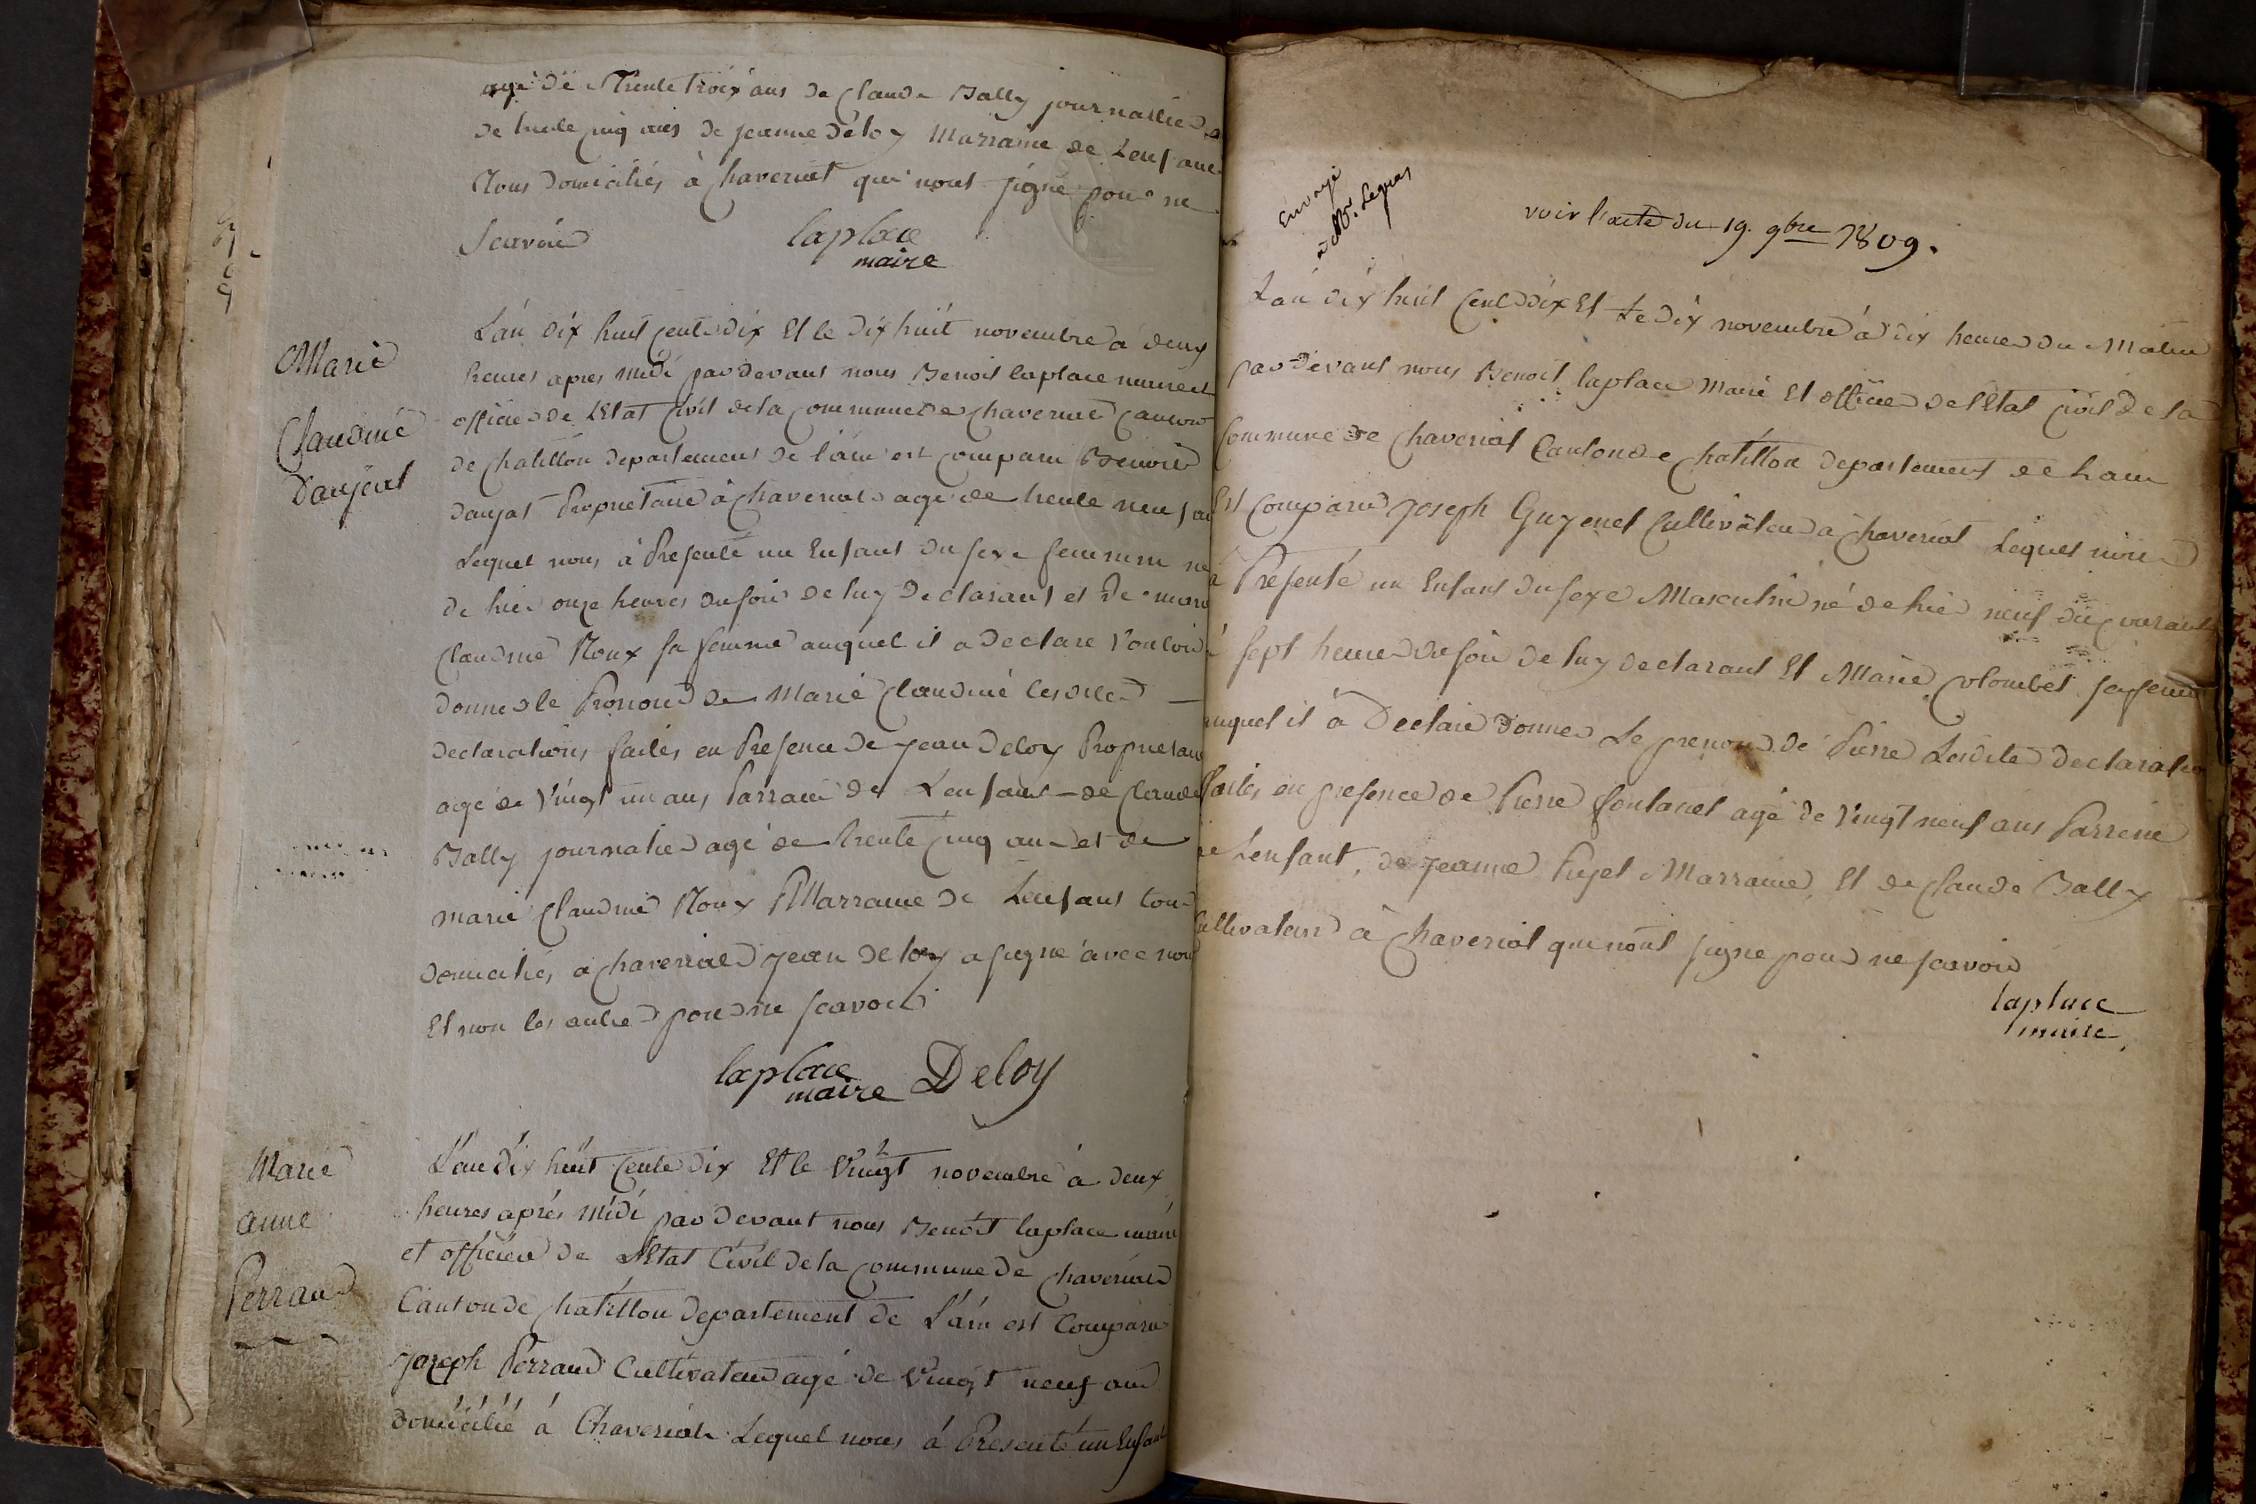 agé de Trente troix ans de Claude Bally journallier
de trente cinq ans de jeanne deloy Marraine de Lenfant
Tous Domiciliés à Chaveriat qui nont signé pour ne
scavoir
laplace
maire
Marie
Claudine
Danjeat
L'an dix huit cents dix Et le dix huit novembre à deux
heures apres midi par devant nous Benoit laplace maire et
officier de L'Etat Civil de la Commune de Chaveriat Canton
de Chatillon departement de l'ain est comparu Benoit
danjat Propriétaire à Chaveriat agé de trente neuf ans
Lequel nous à Presenté un Enfant du sexe feminin né
de hier onze heures du soir de luy Declarant et De marie
Claudine Roux sa femme auquel il a declare Vouloir
donner le Prenom de Marie Claudine lesdites
declarations faites en Presence de jean deloy Proprietaire
agé de Vingt un ans Parrain de L'enfant de Claude
Bally journalier agé de trente cinq ans et de
marie Claudine Roux Marraine de Lenfant tous
domiciliés a Chaveriat jean deloy a signé avec nous
Et non les autres pour ne scavoir
laplace
maire Deloy
Marie
anne
Perraud
L'an dix huit Cents dix Et le Vingt novembre à deux
heures aprés midi par devant nous Benoit laplace maire
et officier de L'Etat Civil de la Commune de Chaveriat
Canton de Chatillon departement de L'ain est Comparu
Joseph Perraud Cultivateur agé de Vingt neuf ans
domicilié à Chaveriat Lequel nous à Presenté un Enfant
Envoyé
à Mr. Legras
voir l'acte du 19. 9bre 1809.
L'an dix huit Cent dix Et Le dix novembre à dix heures du Matin
par devant nous Benoit laplace Maire Et officier de l'Etat Civil de la
Commune de Chaveriat Canton de Chatillon departement de Lain
Est Comparu Joseph Guyenet Cultivateur à Chaveriat Lequel nous
à Presenté un Enfant du sexe Masculin né de hier neuf du courant
à sept heures du soir de luy declarant Et Marie Colombet sa femme
auquel il à Declaré Donner Le prenom de Pierre Lesdites Declaration
faites en presence de Pierre fontanel agé de Vingt neuf ans Parrein
de Lenfant, de jeanne Pujet Marraine, Et de Claude Bally
Cultivateur à Chaveriat qui nont signe pour ne scavoir
laplace
maire